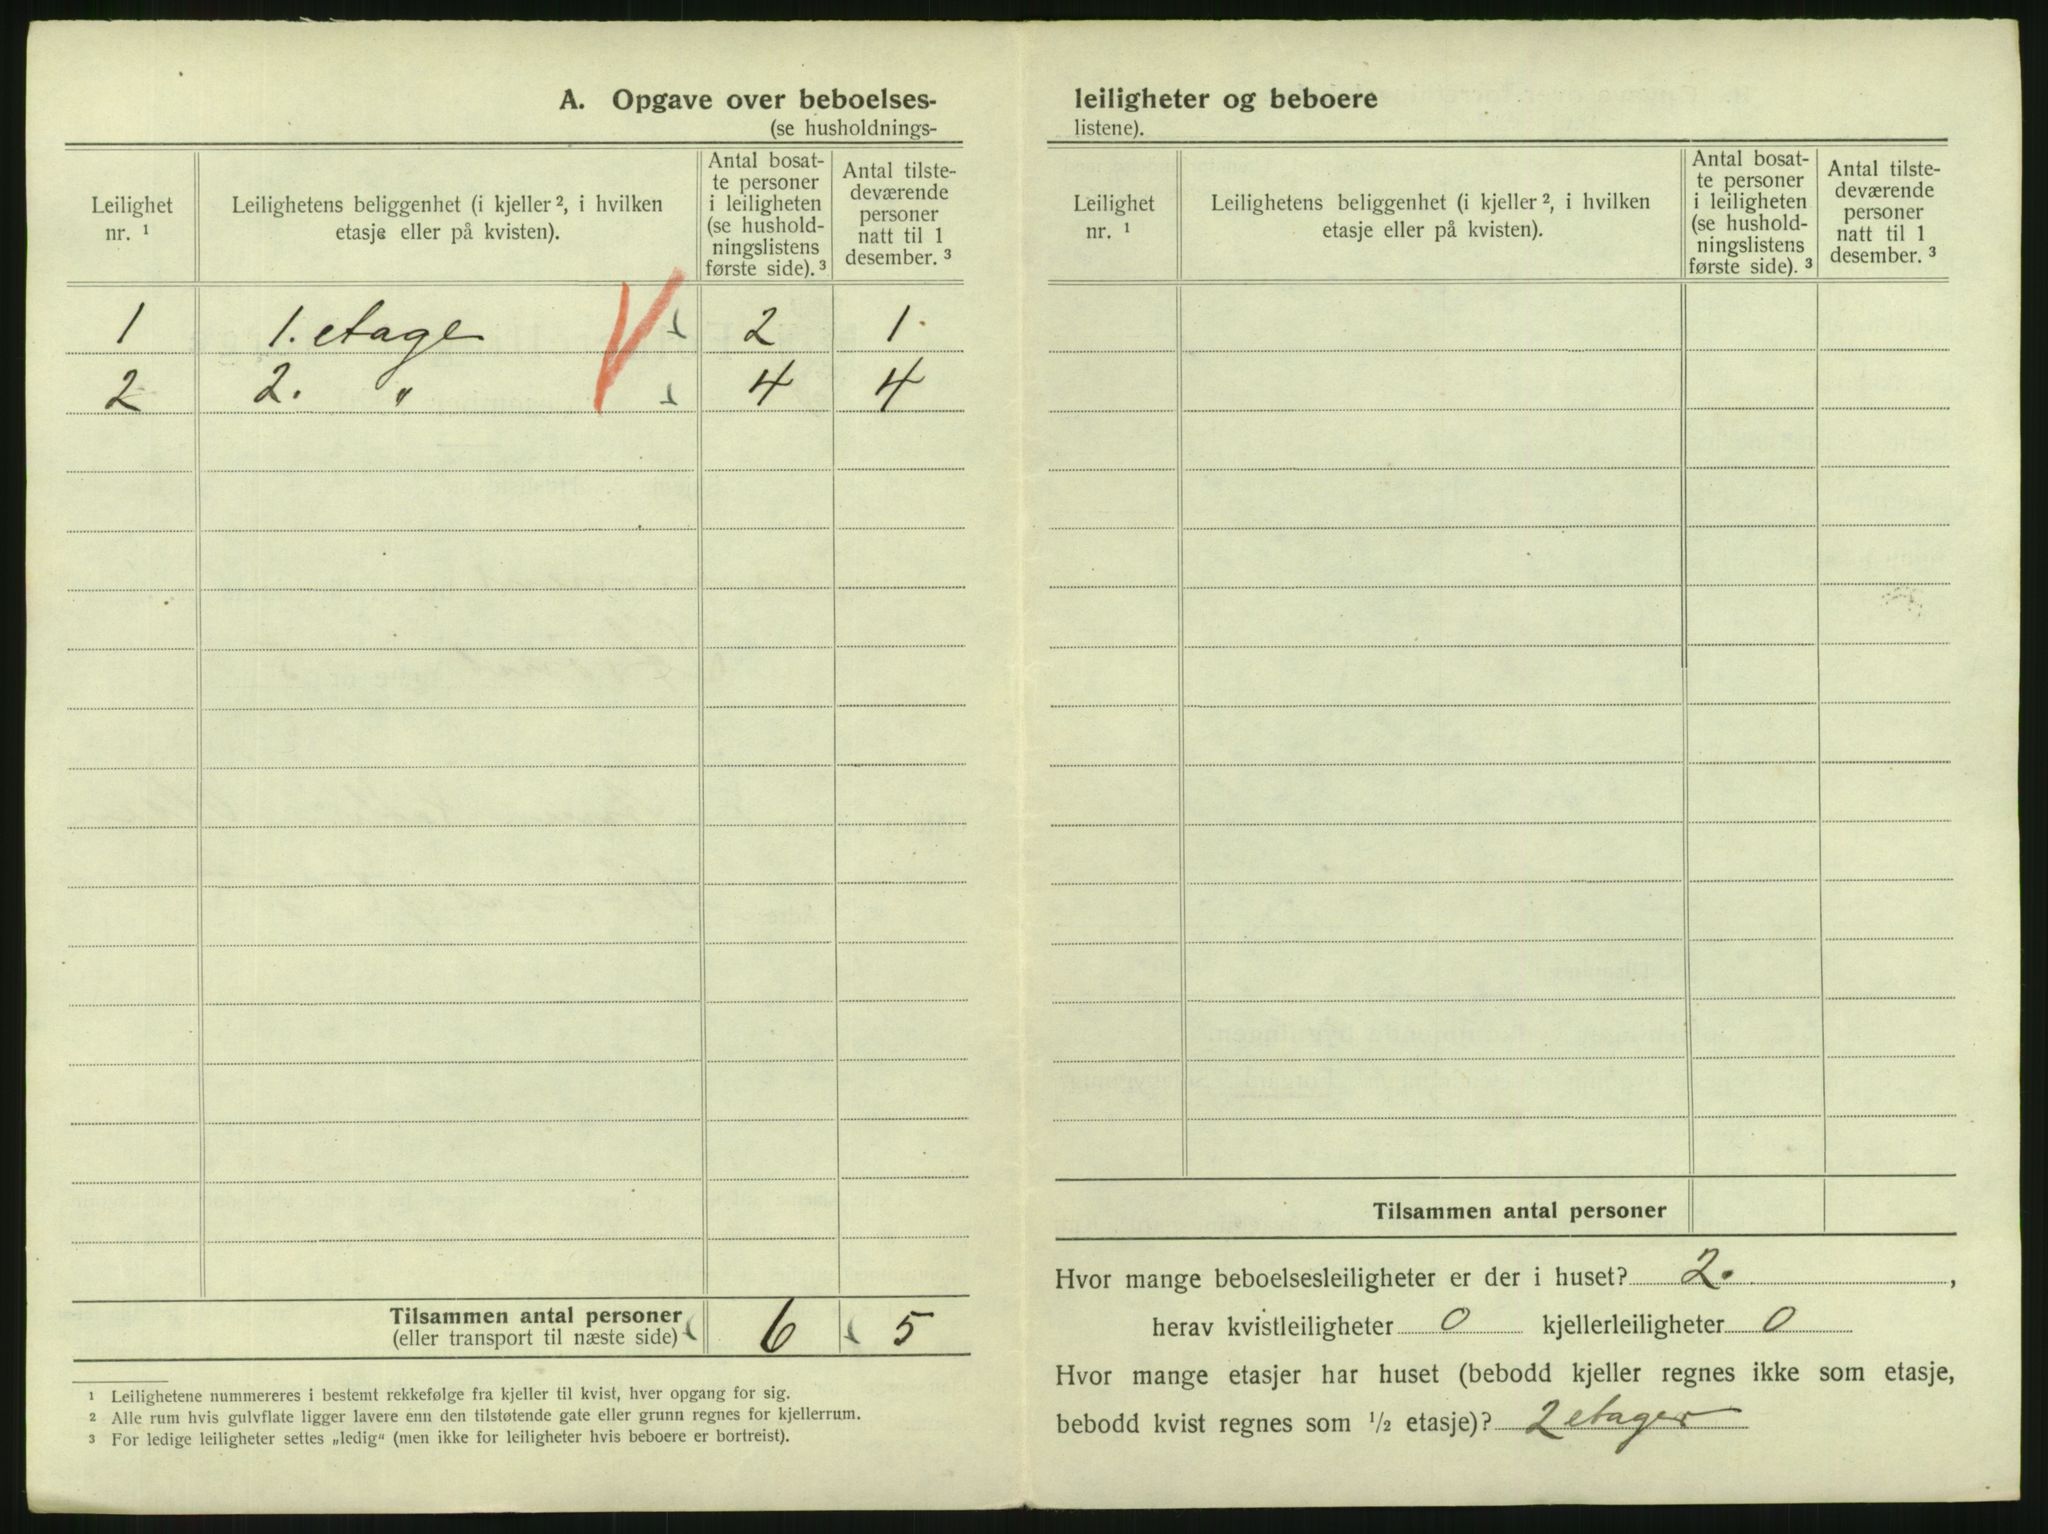 A. Opgave over beboelses-
(se husholdnings-
Leilighet
nr. ¹
Leilighetens beliggenhet (i kjeller ², i hvilken
etasje eller på kvisten).
Antal bosat-
te personer
i leiligheten
(se hushold-
ningslistens
første side). ³
Antal tilste-
deværende
personer
natt til 1
desember. ³
1 1. etage 2 1.
2 2. " 4 4
Tilsammen antal personer 6 5
(eller transport til næste side)
¹ Leilighetene nummereres i bestemt rekkefølge fra kjeller til kvist, hver opgang for sig.
² Alle rum hvis gulvflate ligger lavere enn den tilstøtende gate eller grunn regnes for kjellerrum.
³ For ledige leiligheter settes „ledig“ (men ikke for leiligheter hvis beboere er bortreist).
leiligheter og beboere
listene).
Leilighet
nr. ¹
Leilighetens beliggenhet (i kjeller ², i hvilken
etasje eller på kvisten).
Antal bosat-
te personer
i leiligheten
(se hushold-
ningslistens
første side). ³
Antal tilste-
deværende
personer
natt til 1
desember. ³
Tilsammen antal personer
Hvor mange beboelsesleiligheter er der i huset? 2. ,
herav kvistleiligheter 0 kjellerleiligheter 0
Hvor mange etasjer har huset (bebodd kjeller regnes ikke som etasje,
bebodd kvist regnes som ½ etasje)? 2 etager